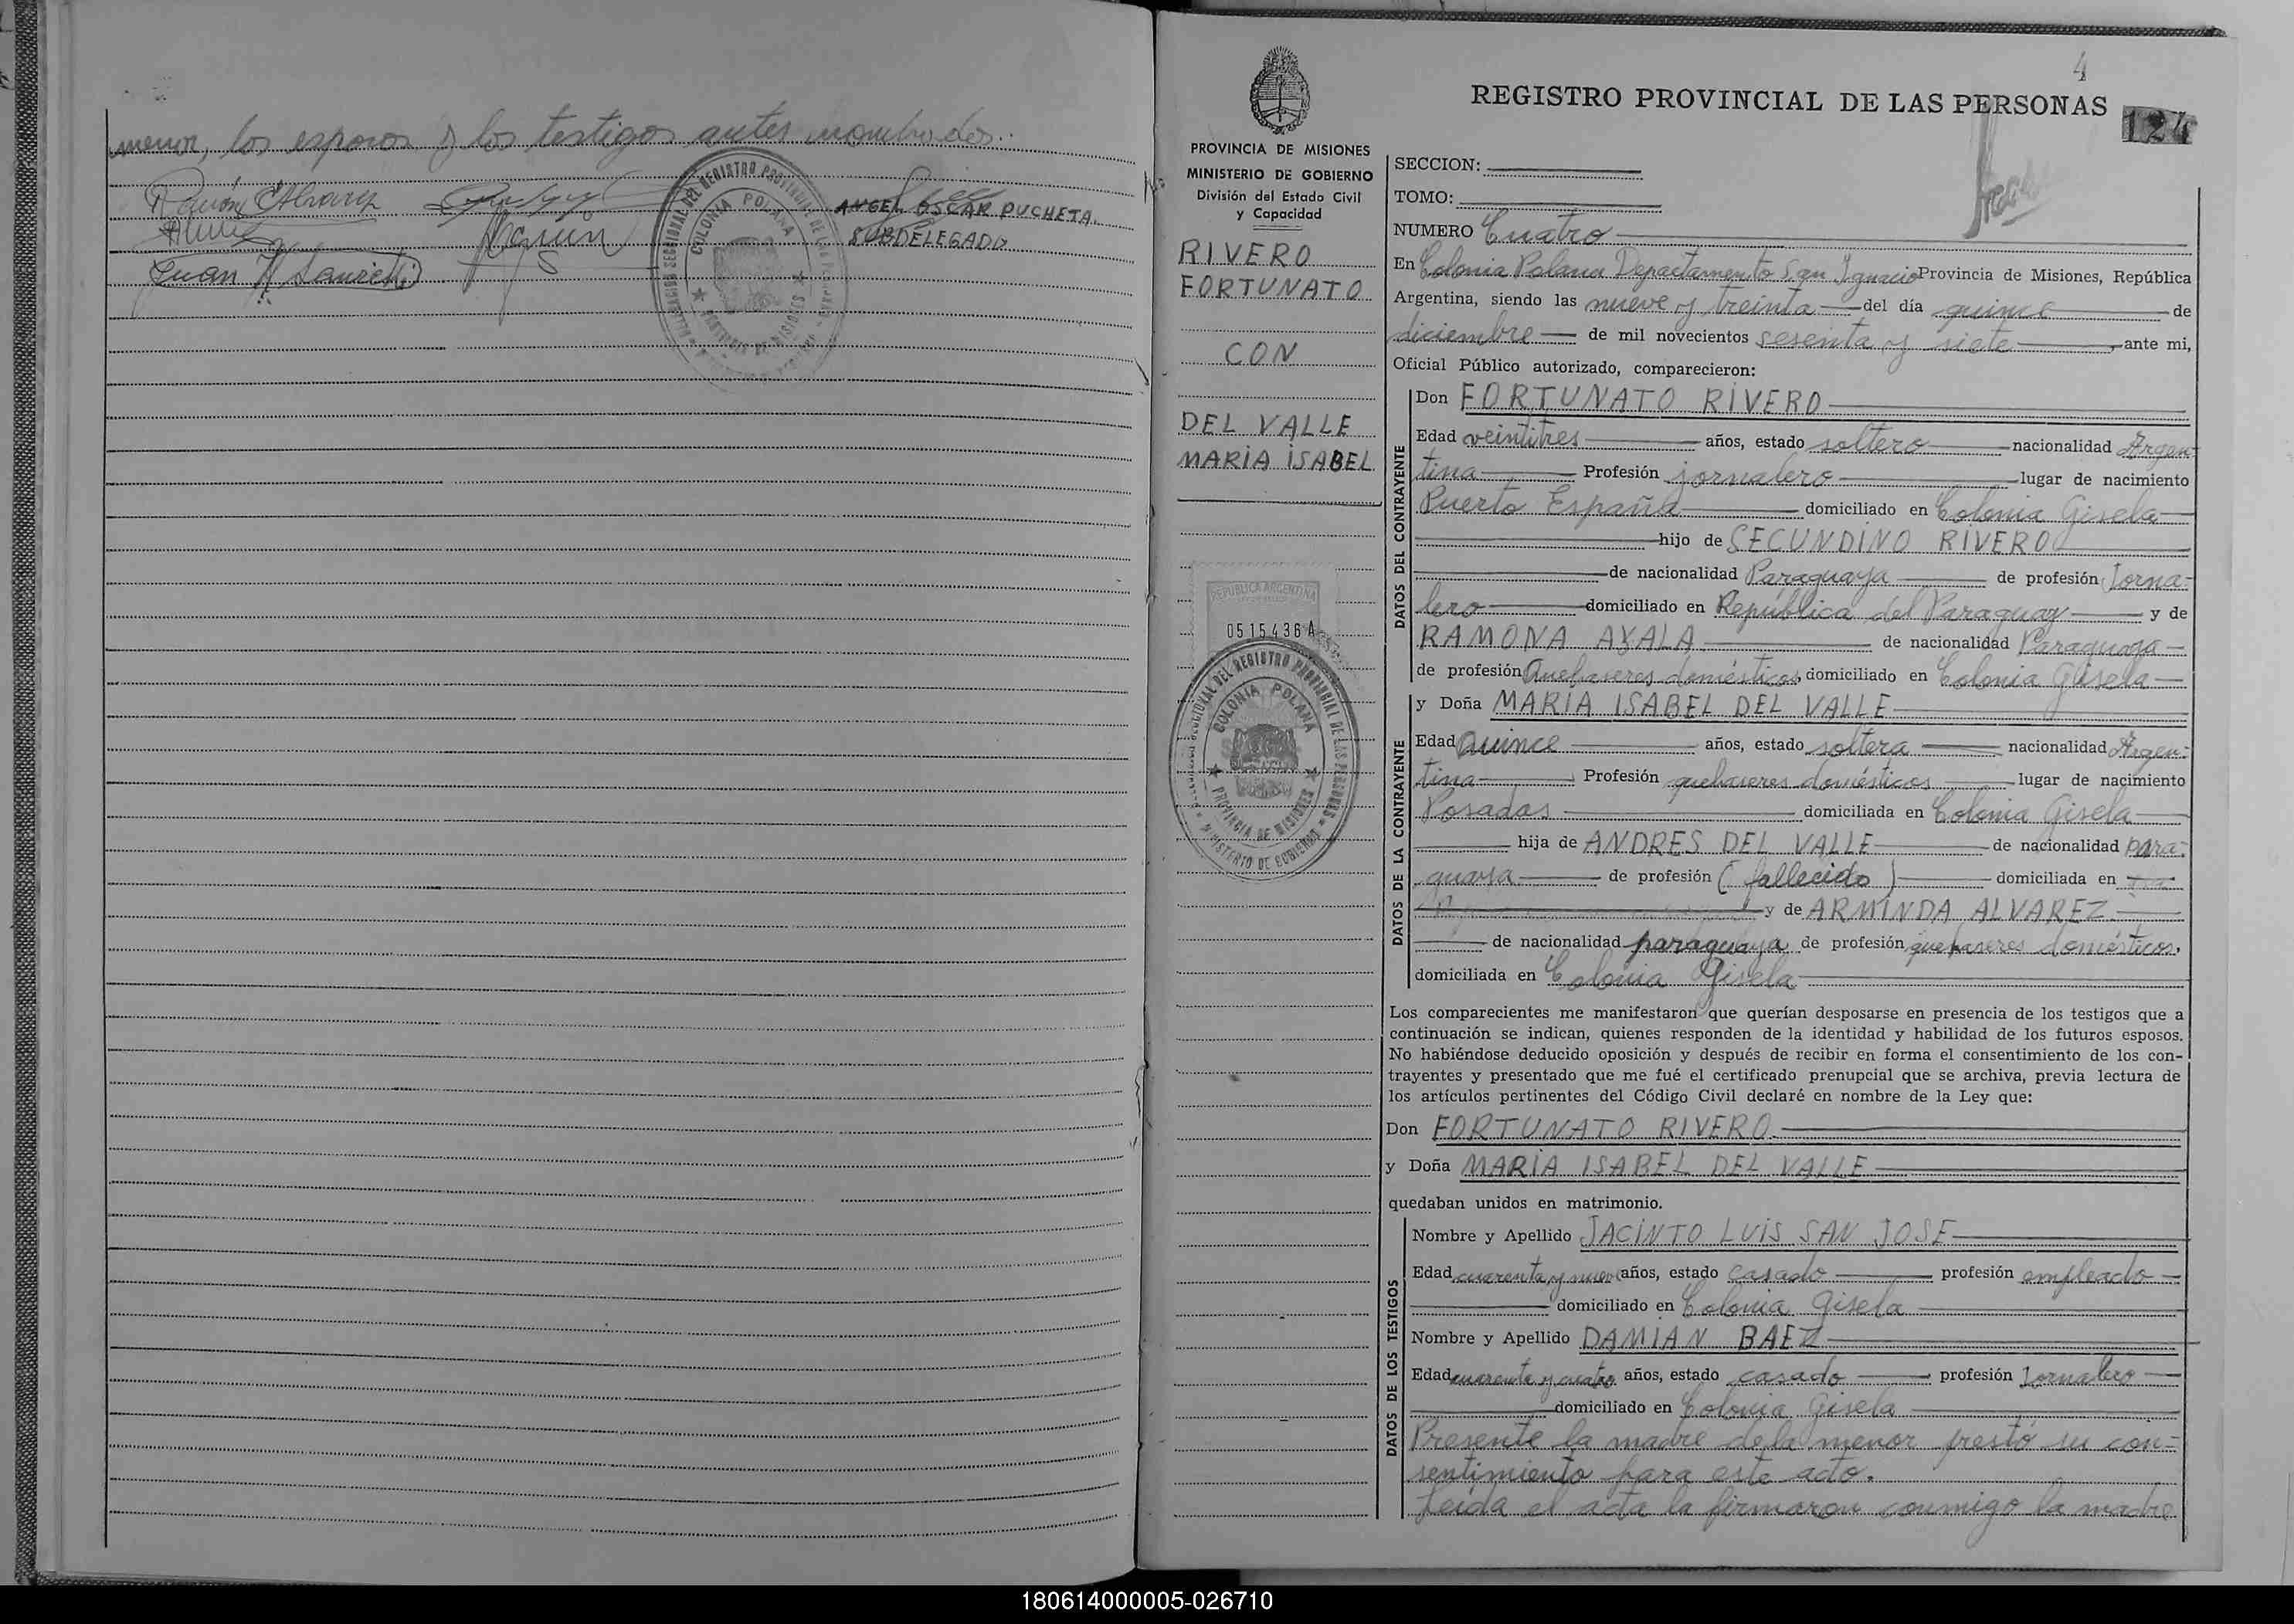 menor, los esposos y los testigos antes nombrados.
Ramón Alvarez
Juan
ANGEL OSCAR PUCHETA
SUBDELEGADO
COLONIA POLANA
4
REGISTRO PROVINCIAL DE LAS PERSONAS
124
PROVINCIA DE MISIONES
MINISTERIO DE GOBIERNO
División del Estado Civil
y Capacidad
RIVERO
FORTUNATO
CON
DEL VALLE
MARIA ISABEL
REPUBLICA ARGENTINA
0515436 A
COLONIA POLANA
PROVINCIA DE MISIONES
MINISTERIO DE GOBIERNO
SECCION:
TOMO:
NUMERO Cuatro
En Colonia Polana Departamento San Ignacio Provincia de Misiones, República
Argentina, siendo las nueve y treinta del día quince de
diciembre de mil novecientos sesenta y siete, ante mi,
Oficial Público autorizado, comparecieron:
DATOS DEL CONTRAYENTE
Don FORTUNATO RIVERO
Edad veintitres años, estado soltero nacionalidad Argen-
tina Profesión jornalero lugar de nacimiento
Puerto España domiciliado en Colonia Gisela
hijo de SECUNDINO RIVERO
de nacionalidad Paraguaya de profesión Jorna-
lero domiciliado en República del Paraguay y de
RAMONA AYALA de nacionalidad Paraguaya
de profesión Quehaseres domésticos domiciliado en Colonia Gisela
DATOS DE LA CONTRAYENTE
y Doña MARIA ISABEL DEL VALLE
Edad Quince años, estado soltera nacionalidad Argen-
tina Profesión quehaseres domésticos lugar de nacimiento
Posadas domiciliada en Colonia Gisela
hija de ANDRES DEL VALLE de nacionalidad para-
guaya de profesión (fallecido) domiciliada en
y de ARMINDA ALVAREZ
de nacionalidad paraguaya de profesión quehaseres domésticos.
domiciliada en Colonia Gisela
Los comparecientes me manifestaron que querían desposarse en presencia de los testigos que a
continuación se indican, quienes responden de la identidad y habilidad de los futuros esposos.
No habiéndose deducido oposición y después de recibir en forma el consentimiento de los con-
trayentes y presentado que me fué el certificado prenupcial que se archiva, previa lectura de
los artículos pertinentes del Código Civil declaré en nombre de la Ley que:
Don FORTUNATO RIVERO
y Doña MARIA ISABEL DEL VALLE
quedaban unidos en matrimonio.
DATOS DE LOS TESTIGOS
Nombre y Apellido JACINTO LUIS SAN JOSE
Edad cuarenta y nueve años, estado casado profesión empleado
domiciliado en Colonia Gisela
Nombre y Apellido DAMIAN BAEZ
Edad cuarenta y cuatro años, estado casado profesión Jornalero
domiciliado en Colonia Gisela
Presente la madre de la menor prestó su con-
sentimiento para este acto.
Leída el acta la firmaron conmigo la madre
180614000005-026710